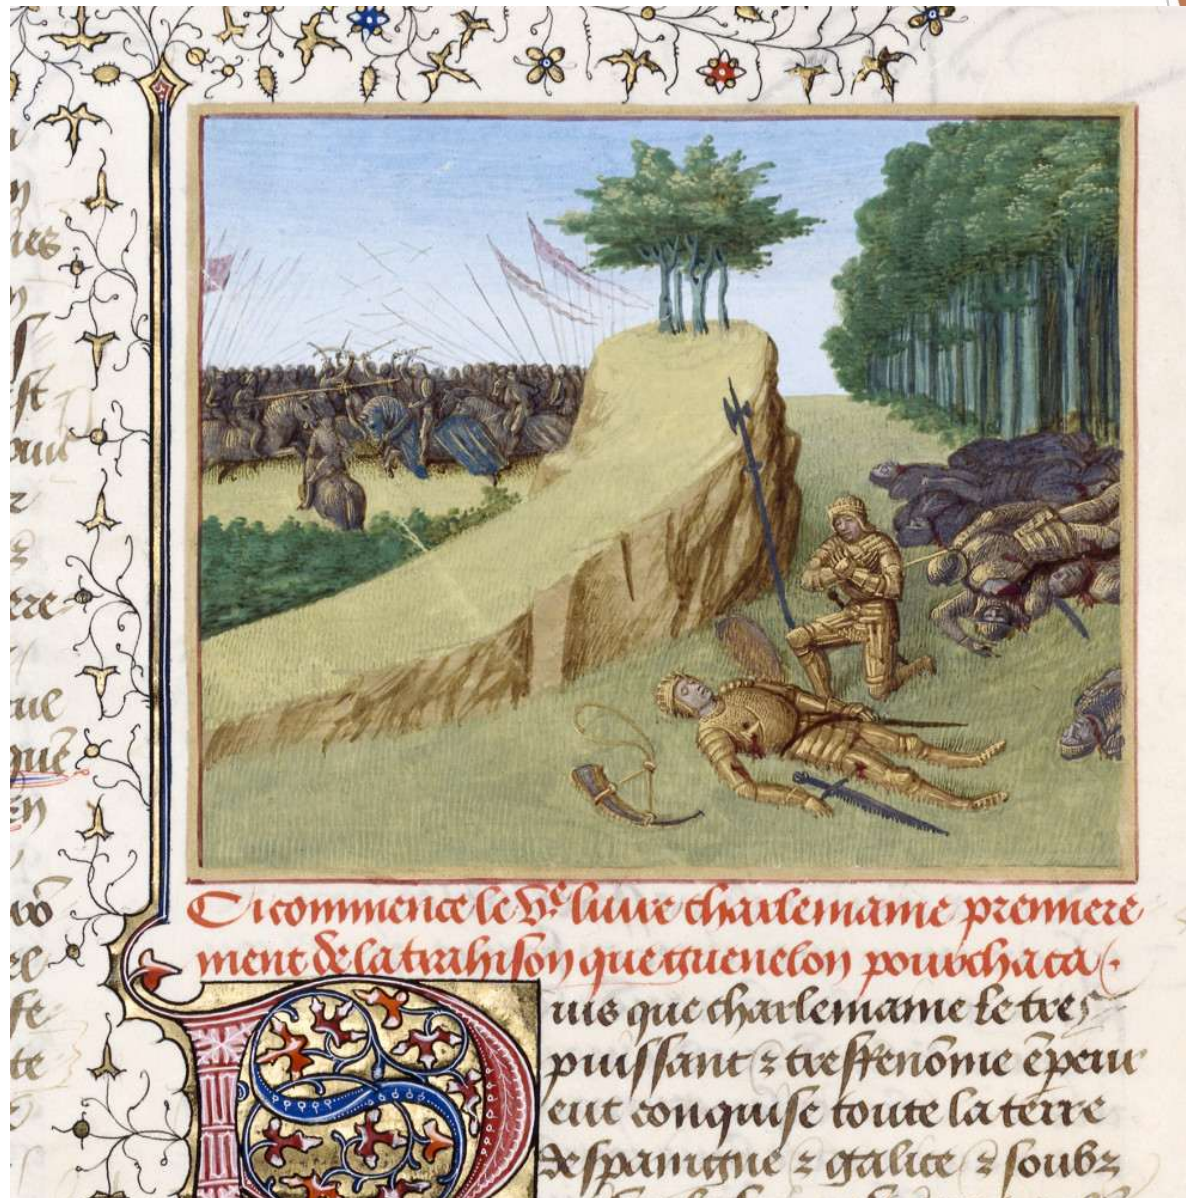 Ci commence le V.e liure charlemaine premiere
ment de la trahison que guenelon pourchaca.
Puis que charlemaine le tres
puissant ⁊ tresrenōme ēpeur
eut conquise toute la terre
despaingne ⁊ galice ⁊ soubz